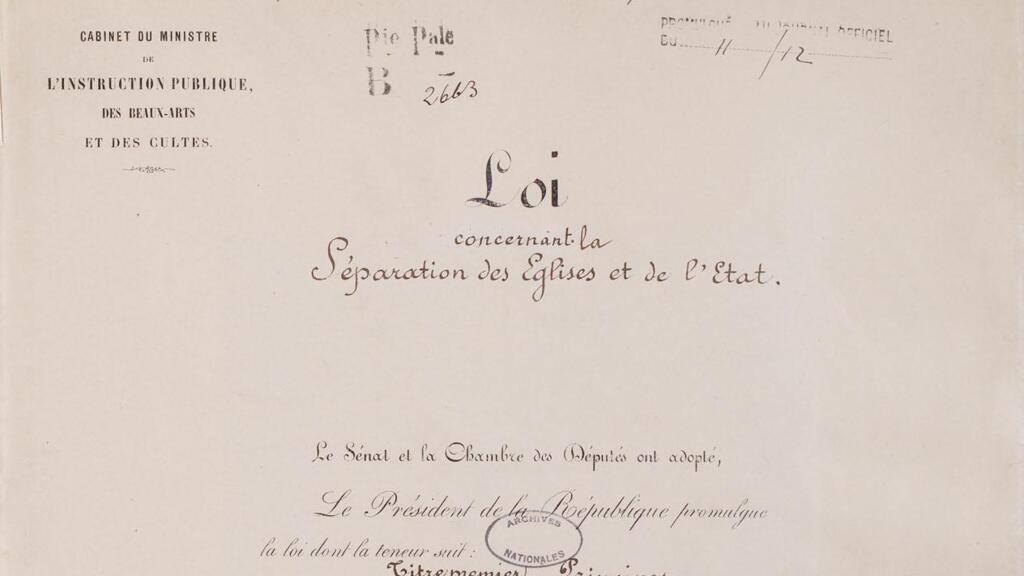 CABINET DU MINISTRE
DE
L'INSTRUCTION PUBLIQUE,
DES BEAUX-ARTS
ET DES CULTES.
Pie Pale
B 2663
PROMULGUÉ AU JOURNAL OFFICIEL
DU 11/12
Loi
concernant la
Séparation des Eglises et de l'Etat.
Le Sénat et la Chambre des Députés ont adopté,
Le Président de la République promulgue
la loi dont la teneur suit :
ARCHIVES
NATIONALES
Titre premier Principes